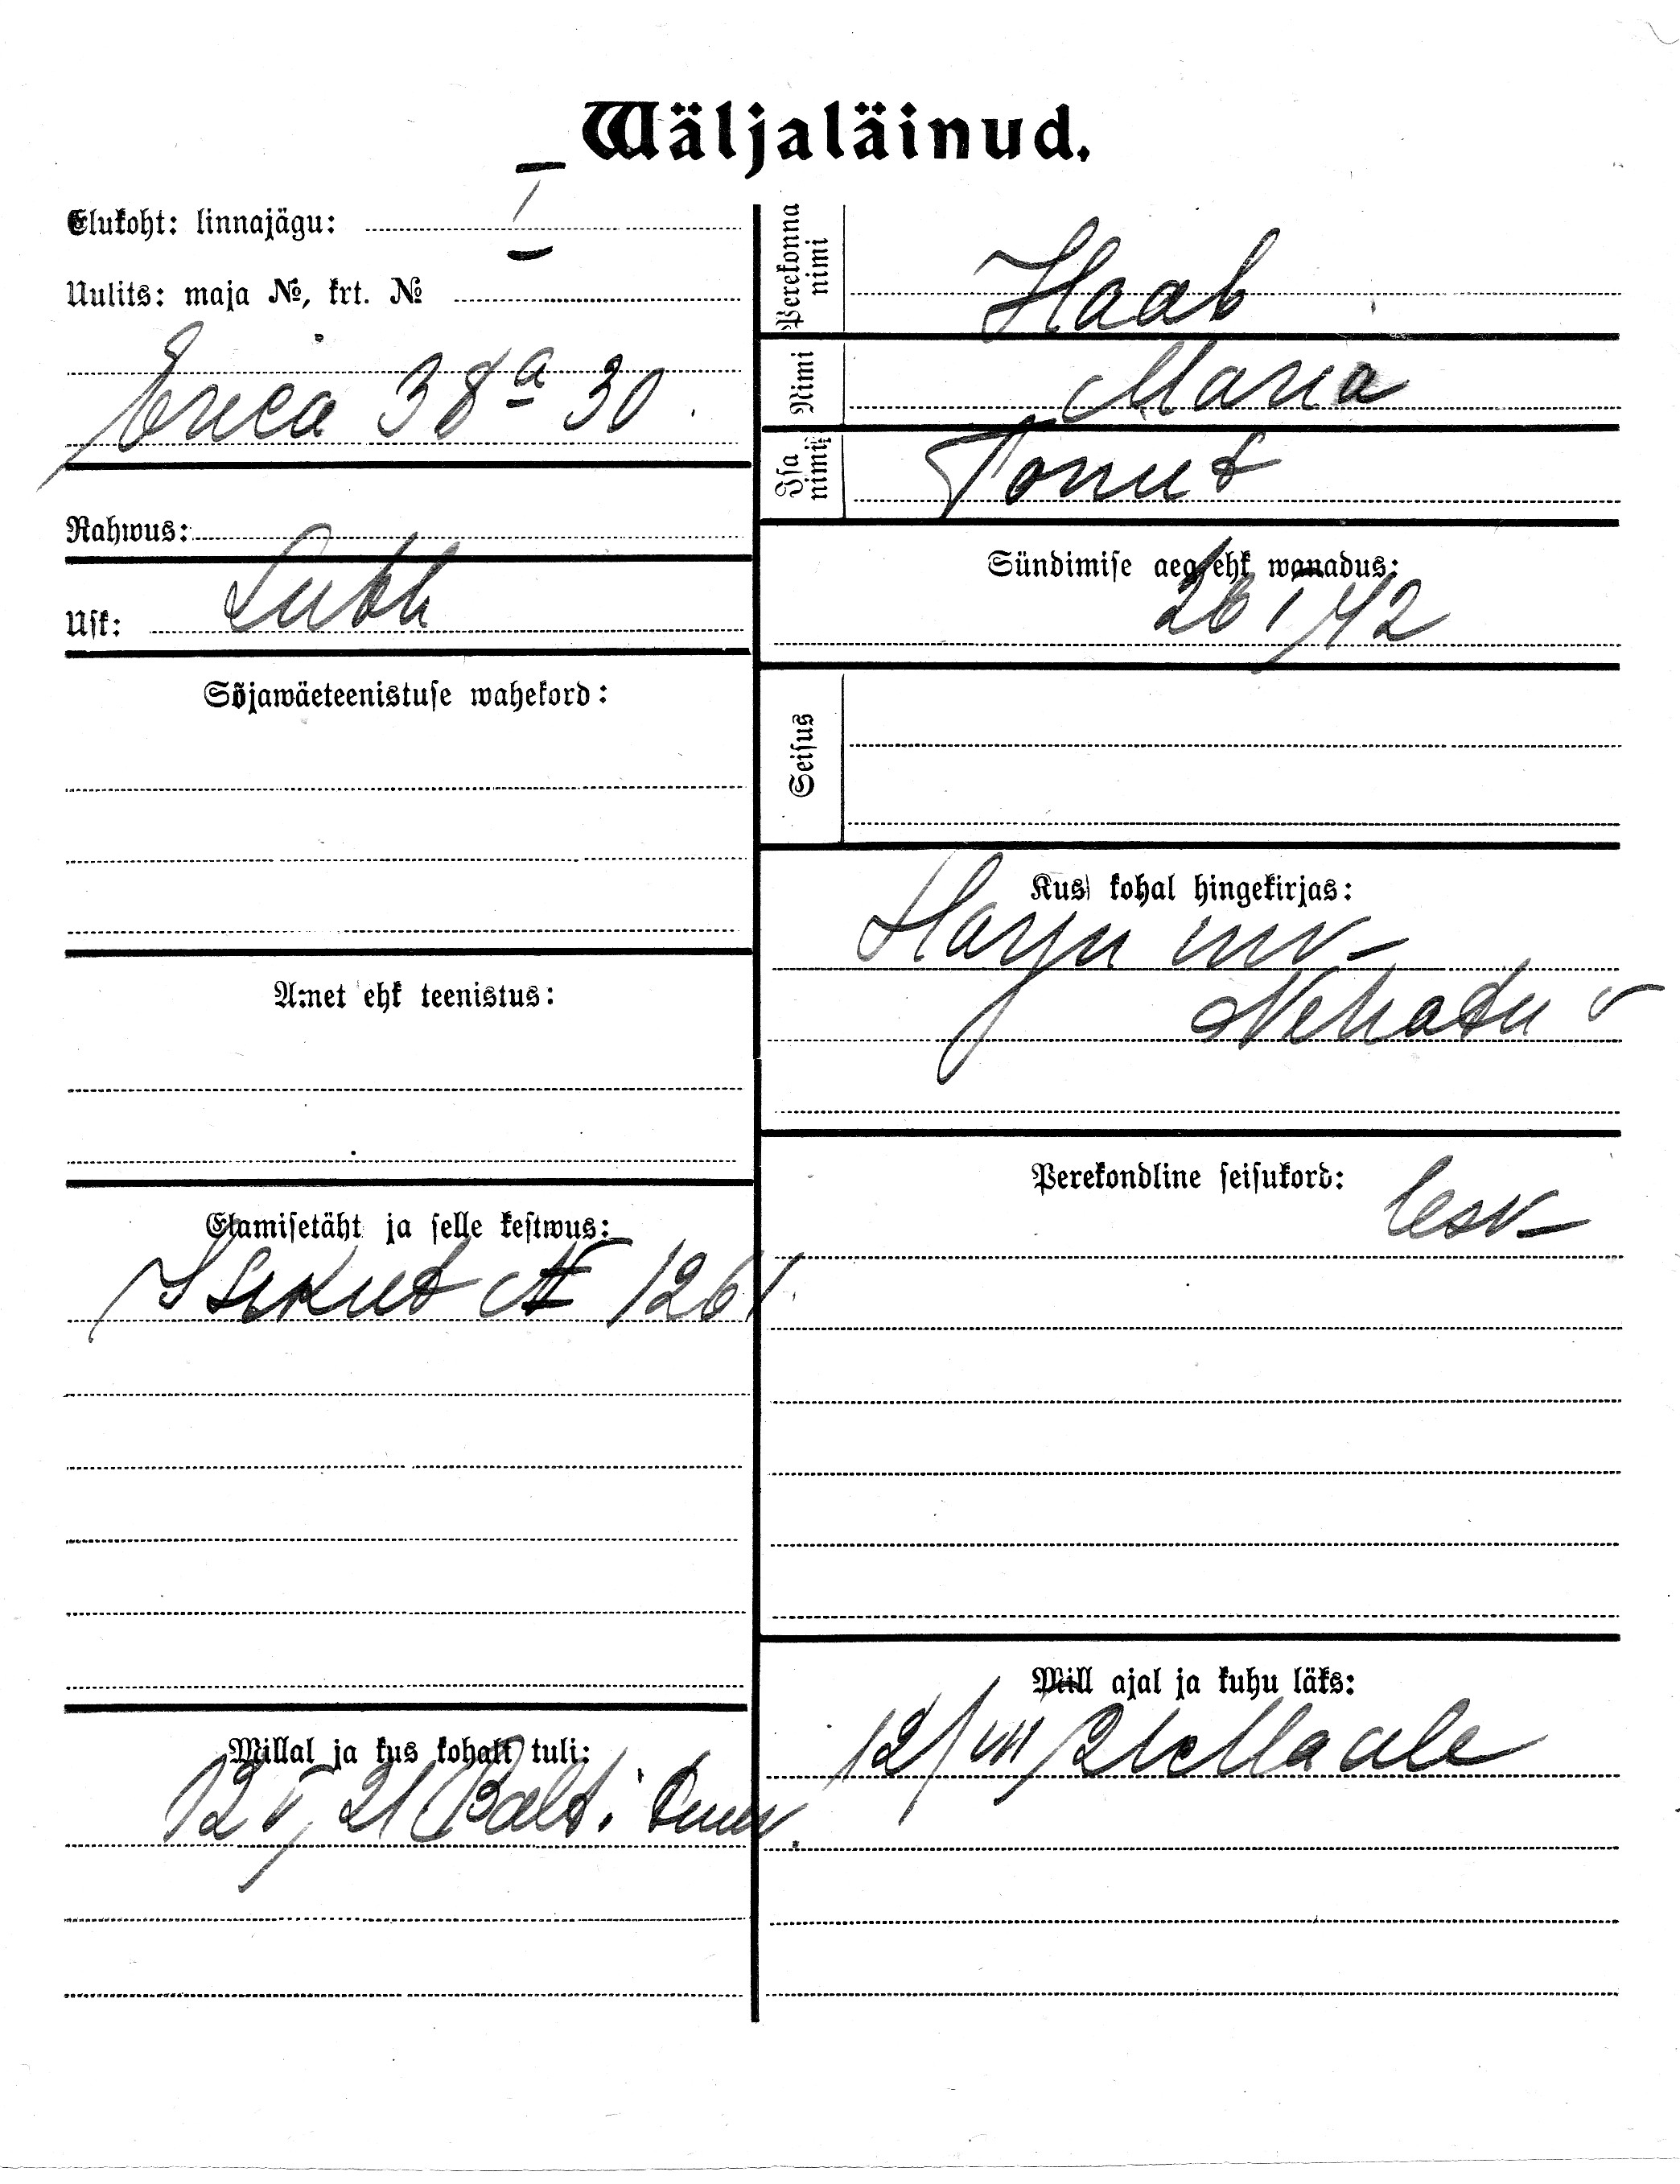 Wäljaläinud.
Elukoht: linnajägu: I
Uulits: maja №, krt. №
Erica 38a 30.
Rahwus:
Usk: Luth
Sõjawäeteenistuse wahekord:
Amet ehk teenistus:
Elamisetäht ja selle kestwus:
Isikut № 1261.
Millal ja kus kohalt tuli:
12 V 21 Balti
Perekonna nimi Haab
Nimi Maria
Isa nimi Tonut
Sündimise aeg ehk wanadus:
26 I 42
Seisus
Kus kohal hingekirjas:
Harju mv-
Nehatu v
Perekondline seisukord: lesk
Mill ajal ja kuhu läks:
12/VII 21 Maale